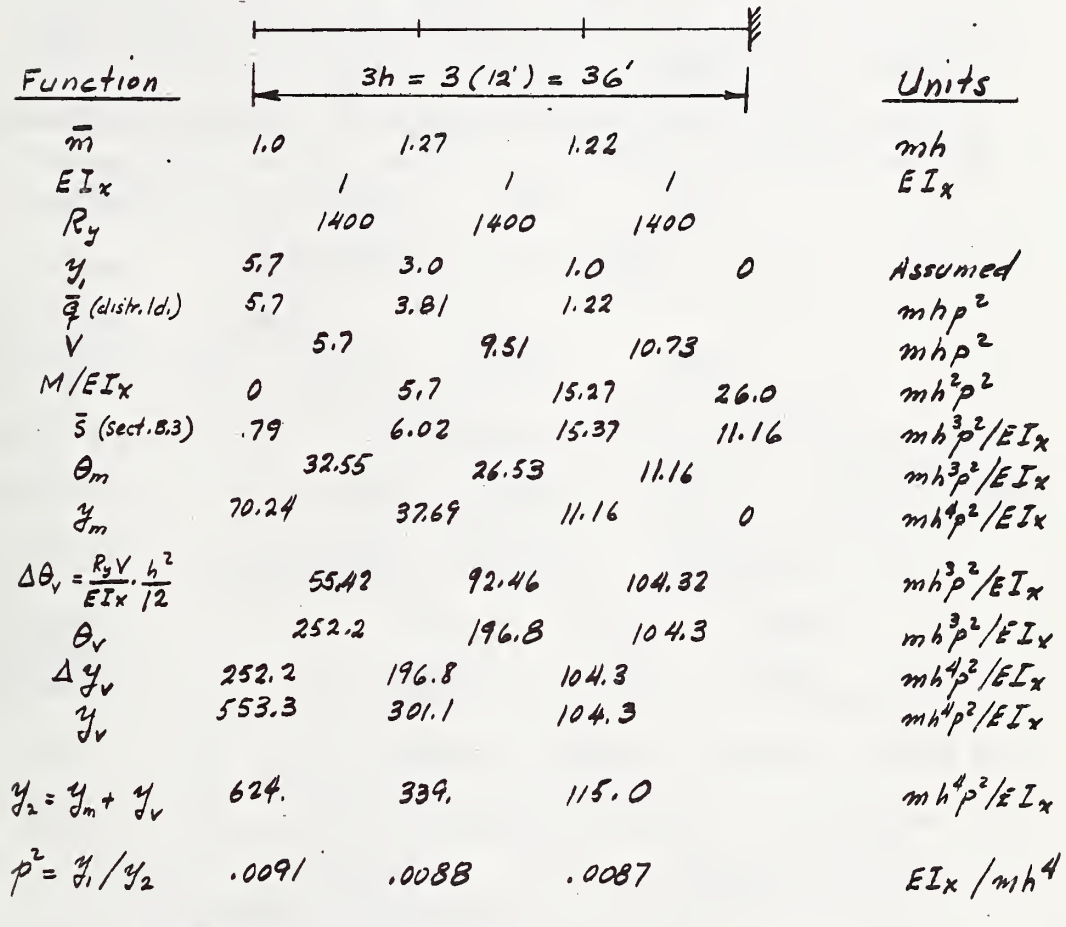 3h = 3 (12') = 36'
Function Units
m̄ 1.0 1.27 1.22 mh
EIx 1 1 1 EIx
Ry 1400 1400 1400
y₁ 5.7 3.0 1.0 0 Assumed
q̄ (distr. ld.) 5.7 3.81 1.22 mhp²
V 5.7 9.51 10.73 mhp²
M/EIx 0 5.7 15.27 26.0 mh²p²
s̄ (sect. B.3) .79 6.02 15.37 11.16 mh³p²/EIx
θm 32.55 26.53 11.16 mh³p²/EIx
ym 70.24 37.69 11.16 0 mh⁴p²/EIx
Δθv = RyV/EIx · h²/12 55.42 92.46 104.32 mh³p²/EIx
θv 252.2 196.8 104.3 mh³p²/EIx
Δyv 252.2 196.8 104.3 mh⁴p²/EIx
yv 553.3 301.1 104.3 mh⁴p²/EIx
y₂ = ym + yv 624. 339. 115.0 mh⁴p²/EIx
p² = y₁/y₂ .0091 .0088 .0087 EIx/mh⁴